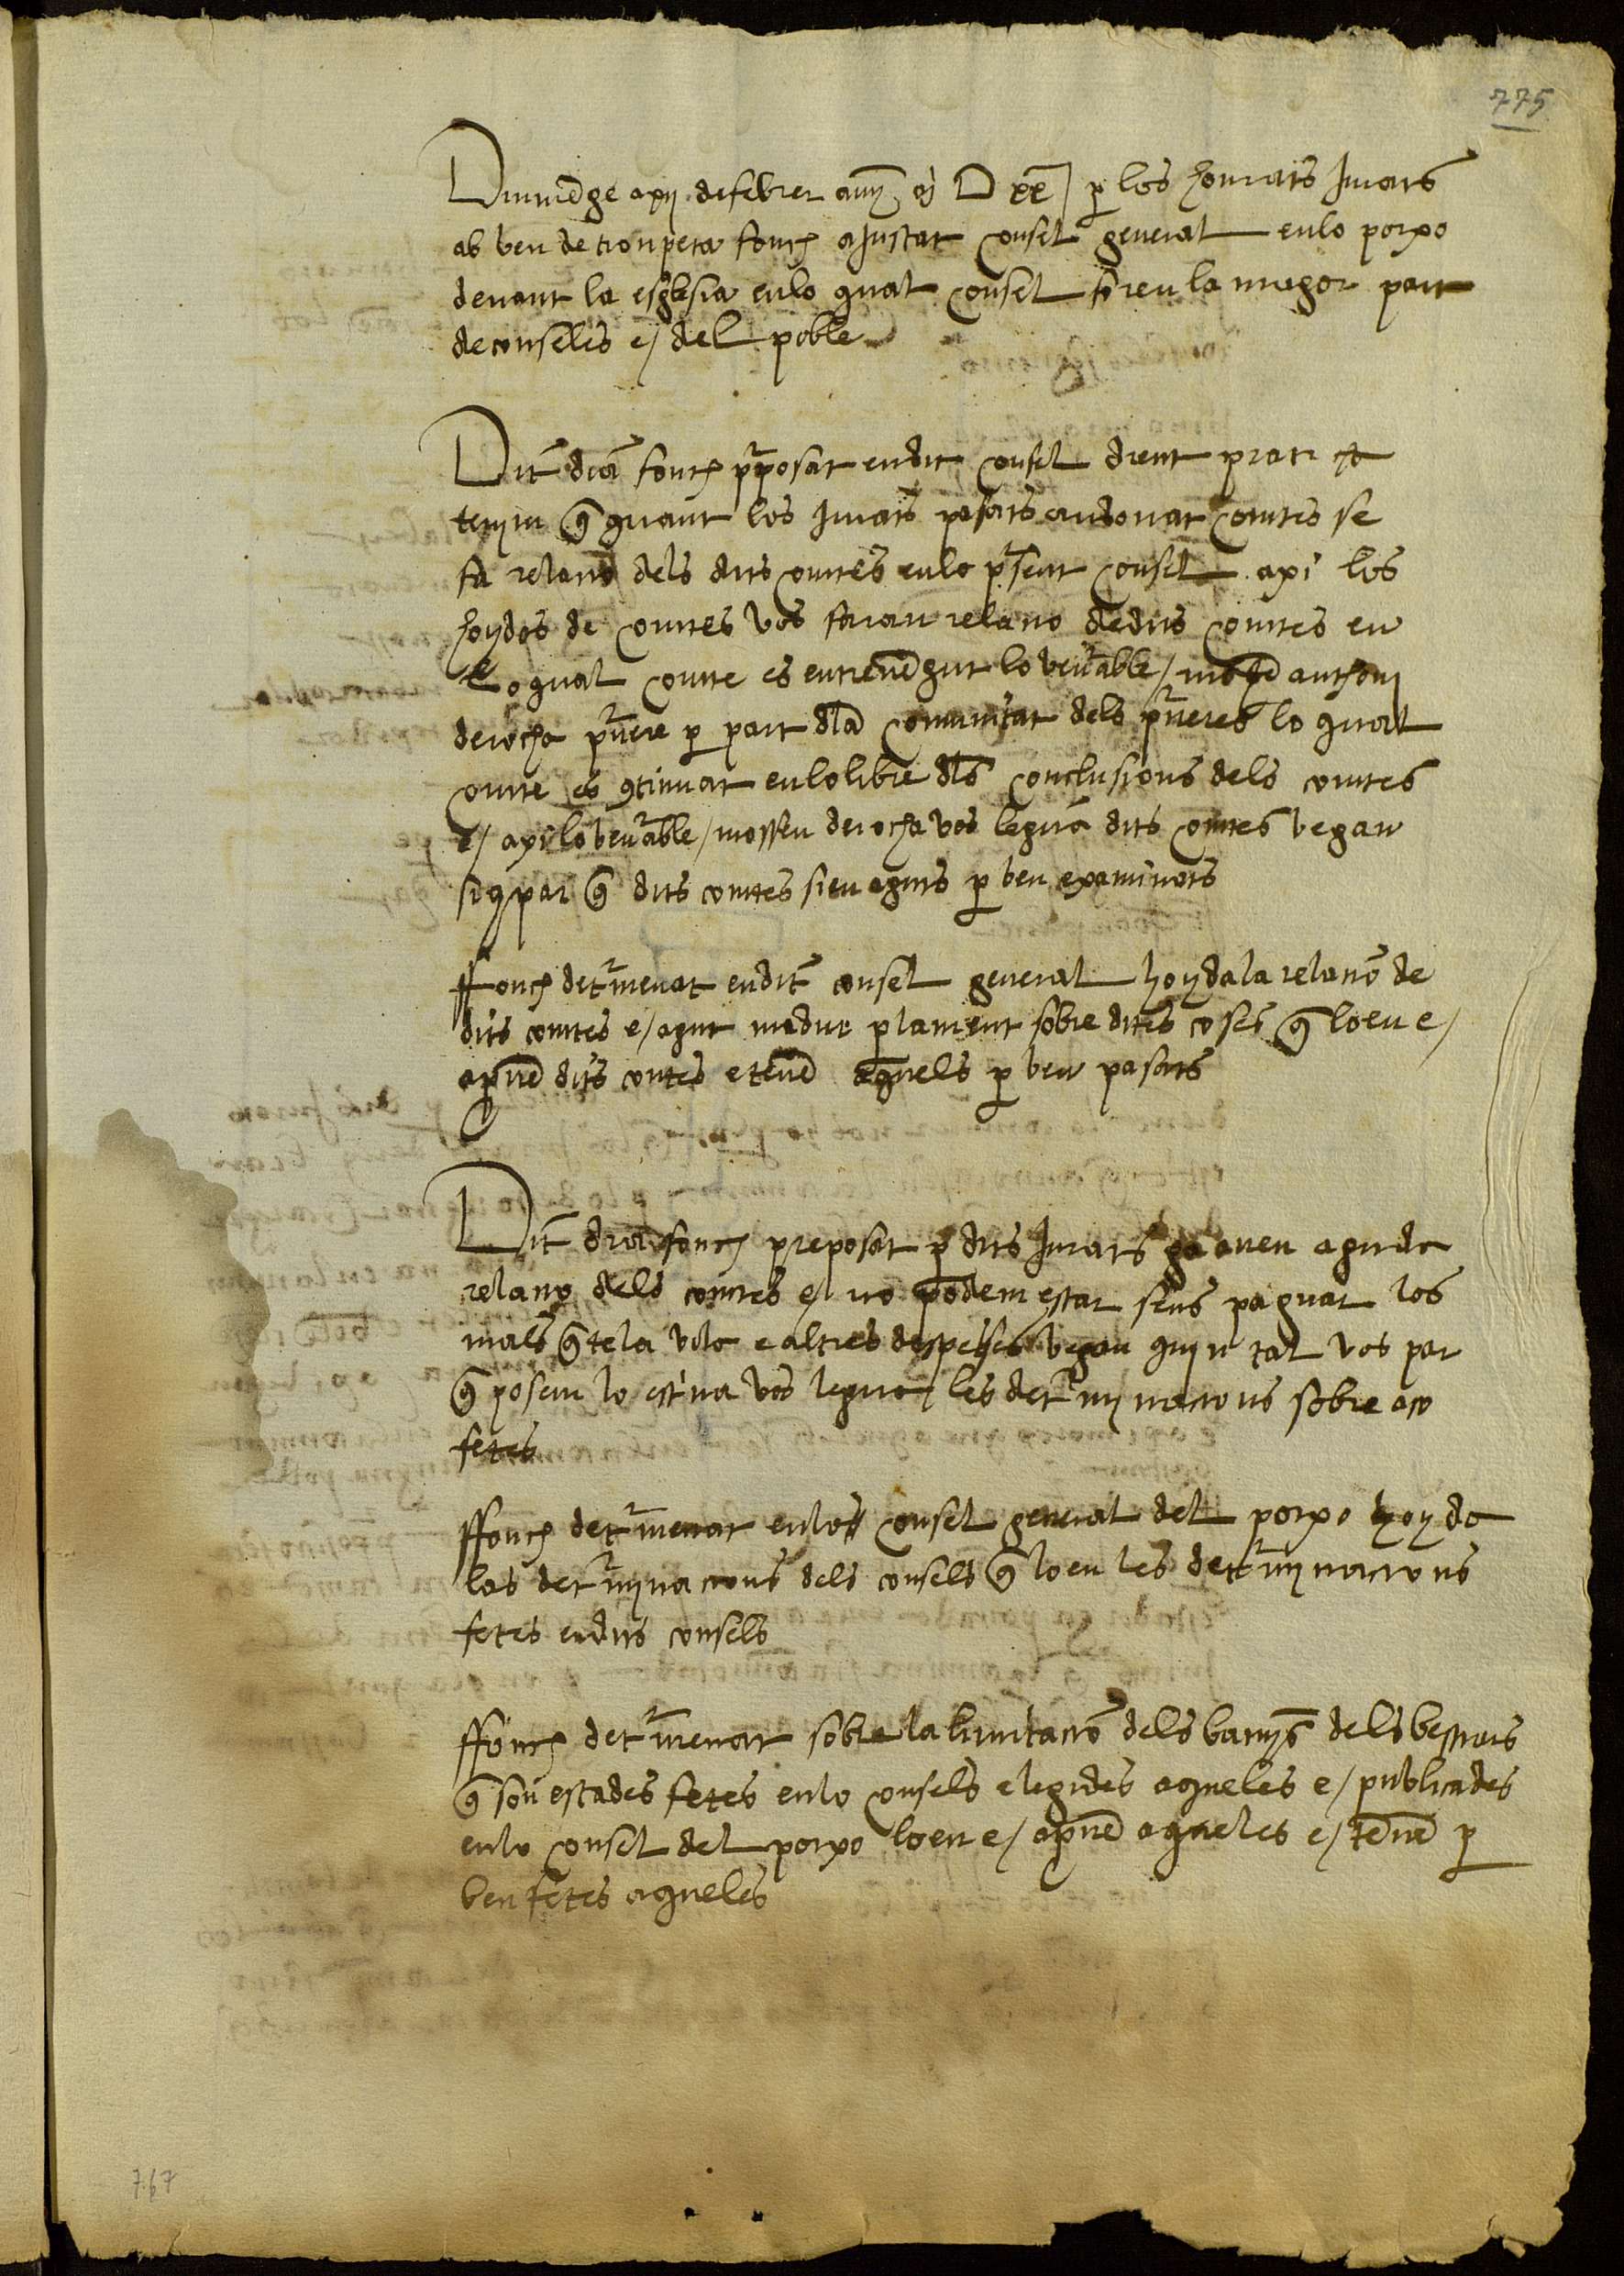 775
Diumēge xij de febrer any M D xx per los honrats Jurats
ab veu de trompeta fonch aiustat consel general en lo porxo
devant la esglesia en lo qual consel foren la magor part
de conseles e/ del poble
Dit dia fonch proposat en dit consel dient
que quant los Jurats pasats an donat comtes se
fa relatio dels dits comtes en lo pnt consel axi los
hoydos de comtes vos faran relatio de dits comtes en
lo qual comte es entrevēgut lo venerable / mossē anthoni
de rocha pvere p part dla comunitat dels pveres lo qual
comte es cōtinuat en lo libre dls conclusions dels comtes
e/ axi lo venerable / mossen de rocha vos legira dits comtes vegau
si us par q dits comtes sien aguts p ben examinats
ffonch determenat en dit consel general hoyda la relatio de
dits comtes e/ agut madur parlament sobre dites coses q loen e/
aproven dits comtes e tenen aquels p ben pasats
Dit dia fonch preposat p dits Jurats ga aveu aguda
relatio dels comtes e/ no podem estar sens paguar los
mals q te la vila e altres despeses vegau quin tal vos par
q posem lo escriva vos legira les determinacions sobre aço
fetes
ffonch determenat en lo consel general del porxo hoyda
las determinacions dels consels q loen les determinacions
fetes en dits consels
ffonch determenat sobre la limitacio dels banys dels bestiars
q son estades fetes en lo consels elegides aqueles e/ publicades
en lo consel del porxo loen e/ aproven aqueles e/ tenen p
ben fetes aqueles
767